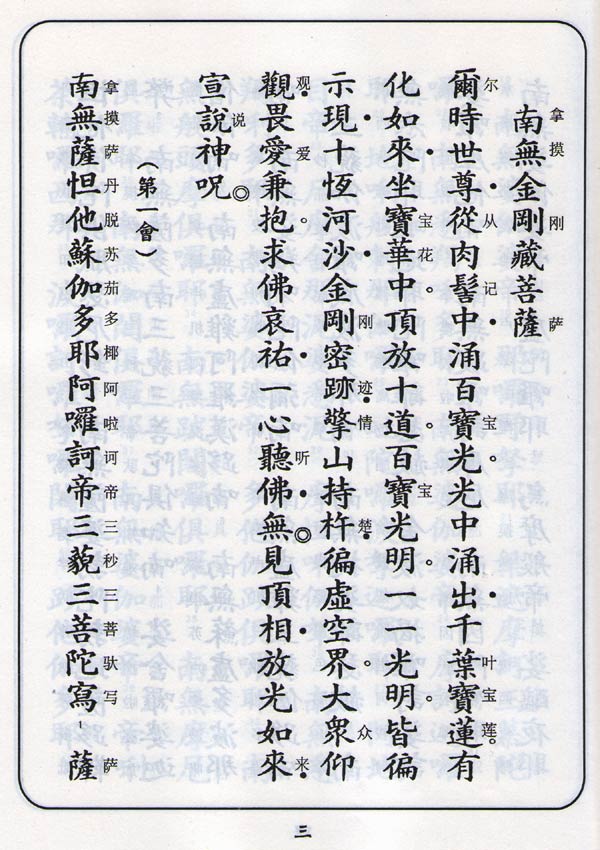 拿摸 刚 萨
南無金剛藏菩薩
尔 从 记 宝。 叶宝莲。
爾時世尊從肉髻中涌百寶光光中涌出千葉寶蓮有
宝花。 。 宝 。 。
化如來坐寶華中頂放十道百寶光明 光明皆徧
刚 迹 情 楚 。 众
示現十恆河沙金剛密跡擎山持杵徧虛空界大眾仰
观 爱 。 听 ◎ 来
觀畏愛兼抱求佛哀祐一心聽佛無見頂相放光如來
说 ◎
宣說神呪
（第一會）
拿摸萨丹脱苏茄多椰阿啦诃帝三秒三菩驮写 萨
南無薩怛他蘇伽多耶阿囉訶帝三藐三菩陀寫1 薩
三